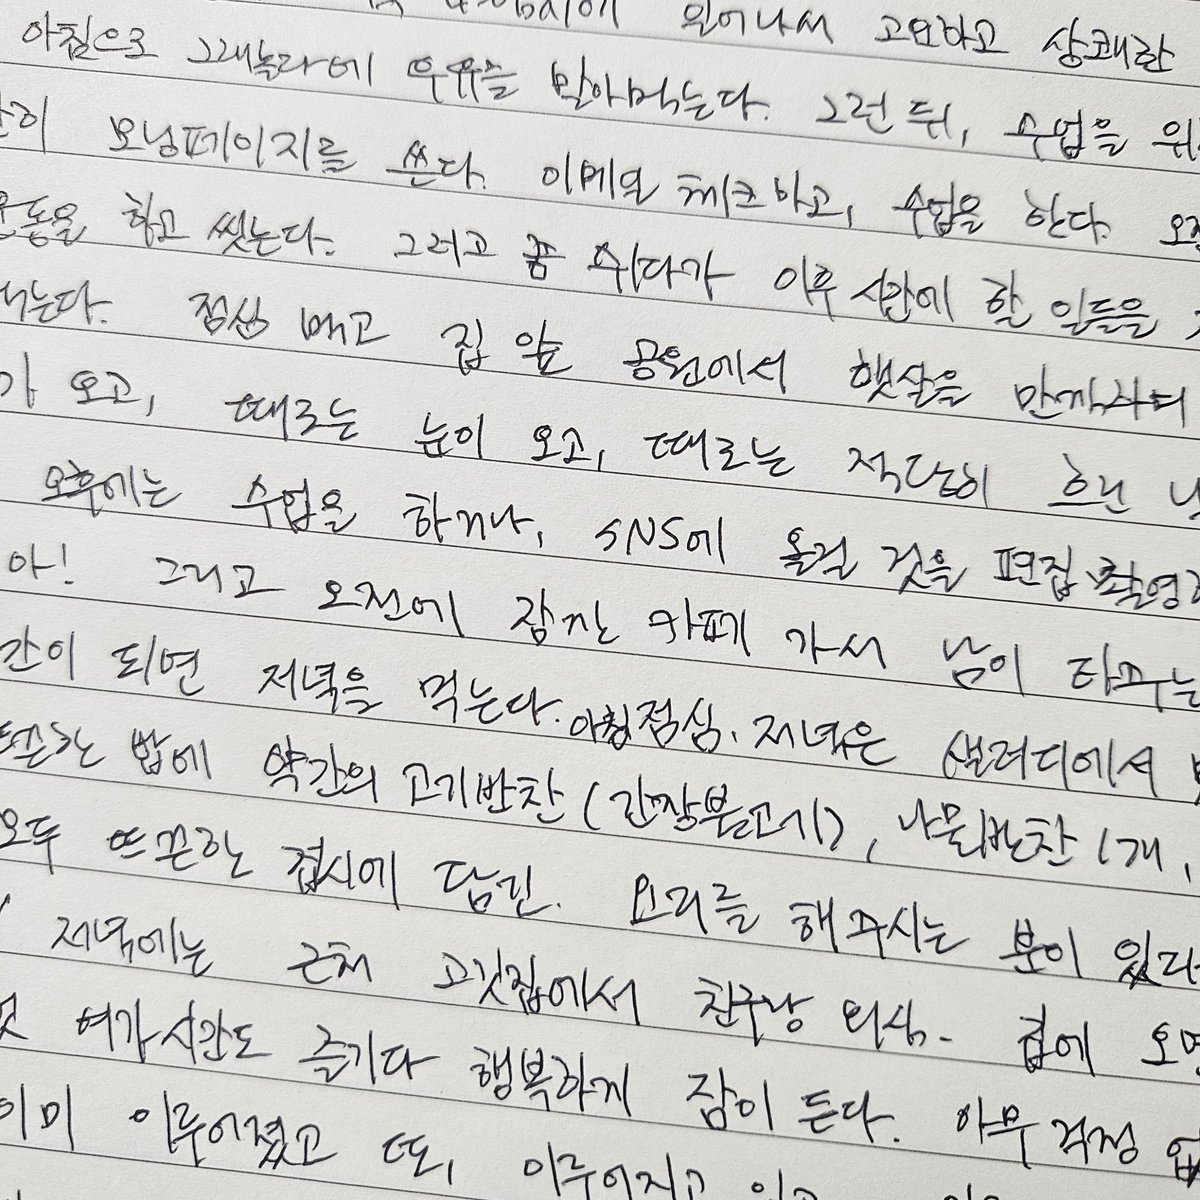 일어나서 고요하고 상쾌한
아침으로 그래놀라에 우유를 말아먹는다. 그런 뒤, 수업을 위
히 모닝페이지를 쓴다. 이메일 체크하고, 수업을 한다. 오전
운동을 하고 씻는다. 그리고 좀 쉬다가 이후 시간에 할 일들을
먹는다. 점심 먹고 집 앞 공원에서 햇살을 만끽하며
가 오고, 때로는 눈이 오고, 때로는 적당히 흐린 날
오후에는 수업을 하거나, SNS에 올릴 것을 편집, 촬영하
아! 그리고 오전에 잠깐 카페 가서 남이 타주는
간이 되면 저녁을 먹는다. 아침, 점심, 저녁은 샐러디에서
뜨끈한 밥에 약간의 고기반찬 (간장불고기), 나물반찬 1개,
모두 뜨끈한 접시에 담긴. 요리를 해주시는 분이 있다.
저녁에는 근처 고깃집에서 친구랑 외식. 집에 오면
여가시간도 즐기다 행복하게 잠이 든다. 아무 걱정 없
이미 이루어졌고 또, 이루어지고 있고